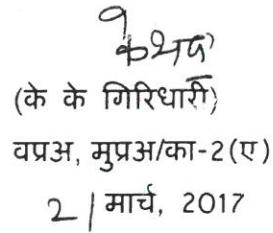 (के के गिरिधारी)
वप्रअ, मुप्रअ/का-2(ए)
2 | मार्च, 2017